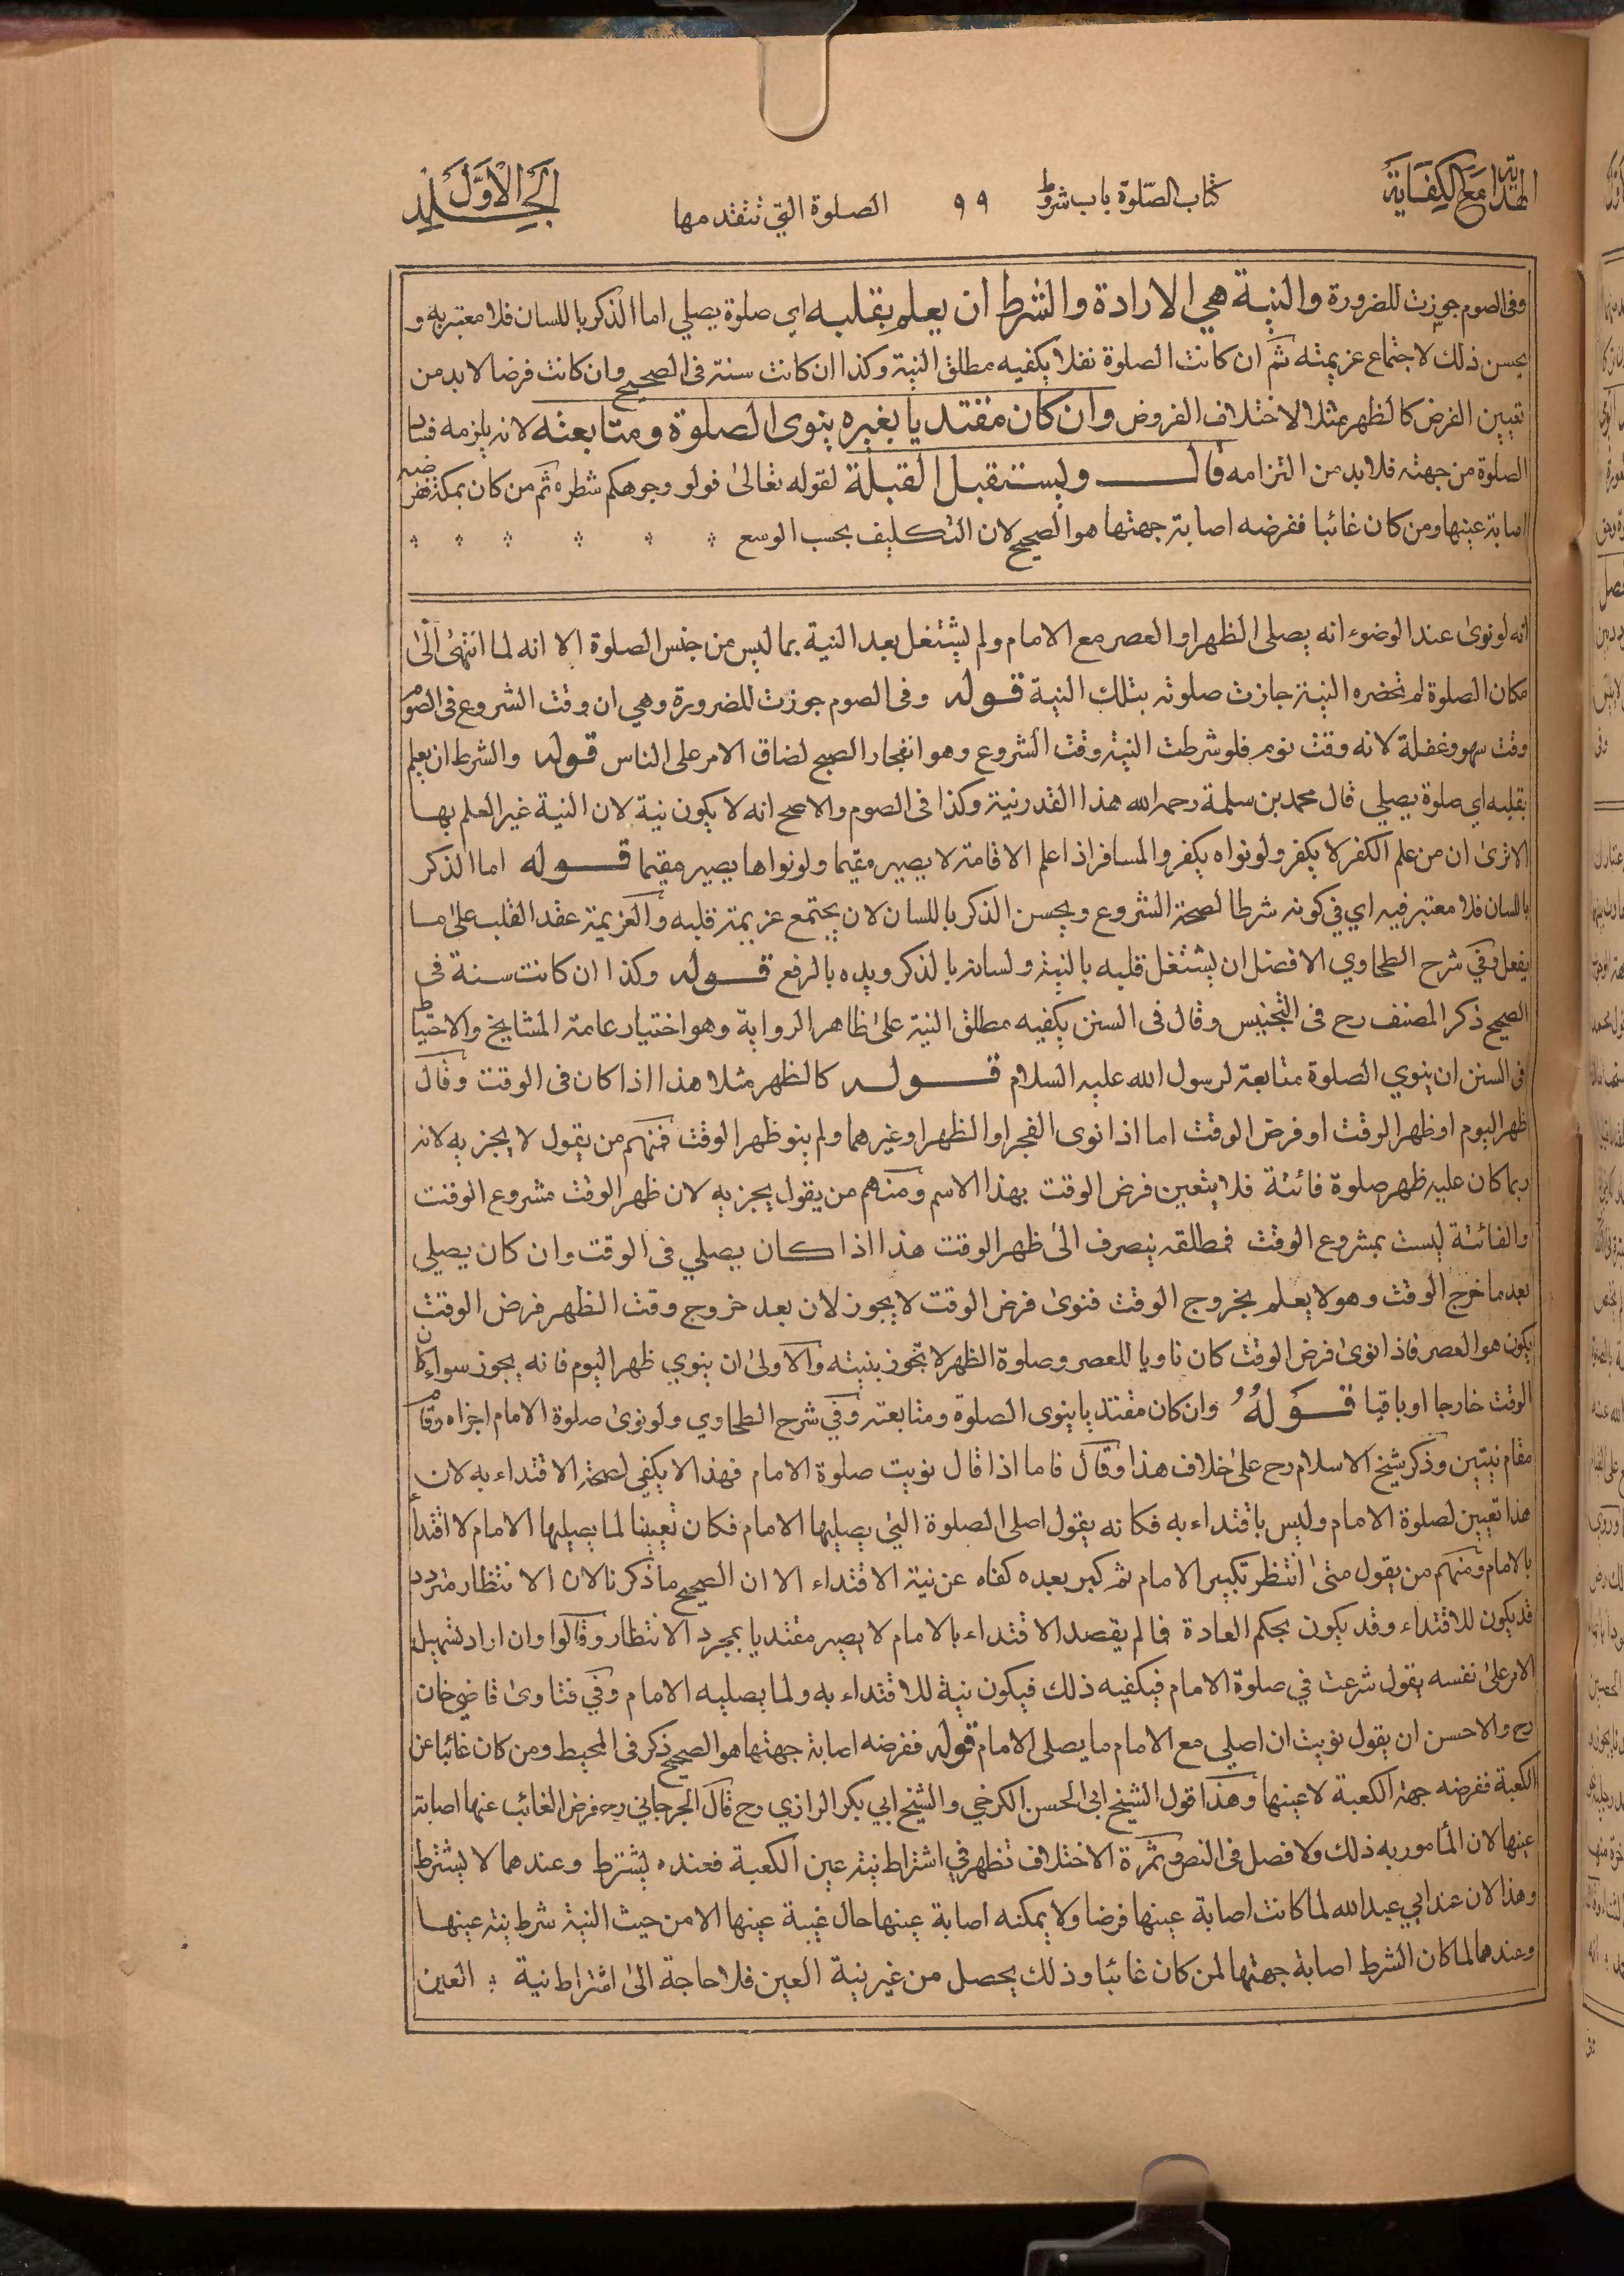 الهداية مع الكفاية
كتاب الصلوة باب شروط
٩٩
الصلوة التي تتقدمها
الجلد الاول
وفى الصوم جوزت للضرورة والنية هي الارادة والشرط ان يعلم بقلبه اي صلوة يصلي اما الذكر باللسان فلا معتبر به و
يحسن ذلك لاجتماع عزيمته ثم ان كانت الصلوة نفلا يكفيه مطلق النية وكذا ان كانت سنة فى الصحيح وان كانت فرضا لا بد من
تعيين الفرض كالظهر مثلا لاختلاف الفروض وان كان مقتديا بغيره ينوى الصلوة ومتابعته لانه يلزمه فساد
الصلوة من جهته فلا بد من التزامه قال ويستقبل القبلة لقوله تعالىٰ فولو وجوهكم شطره ثم من كان بمكة ففرضه
اصابة عينها ومن كان غائبا ففرضه اصابة جهتها هو الصحيح لان التكليف بحسب الوسع
انه لو نوىٰ عند الوضوء انه يصلى الظهر او العصر مع الامام ولم يشتغل بعد النية بما ليس من جنس الصلوة الا انه لما انتهىٰ الىٰ
مكان الصلوة لم تحضره النية جازت صلوته بتلك النية قوله وفى الصوم جوزت للضرورة وهي ان وقت الشروع فى الصوم
وقت سهو وغفلة لانه وقت نوم فلو شرطت النية وقت الشروع وهو انفجار الصبح لضاق الامر على الناس قوله والشرط ان يعلم
بقلبه اي صلوة يصلي قال محمد بن سلمة رحمه الله هذا القدر نية وكذا فى الصوم والاصح انه لا يكون نية لان النية غير العلم بها
الا ترىٰ ان من علم الكفر لا يكفر ولو نواه يكفر والمسافر اذا علم الاقامة لا يصير مقيما ولو نواها يصير مقيما قوله اما الذكر
باللسان فلا معتبر فيه اي في كونه شرطا لصحة الشروع ويحسن الذكر باللسان لان يجتمع عزيمة قلبه والعزيمة عقد القلب علىٰ ما
يفعل وفي شرح الطحاوي الافضل ان يشتغل قلبه بالنية ولسانه بالذكر ويده بالرفع قوله وكذا ان كانت سنة فى
الصحيح ذكر المصنف رح فى التجنيس وقال فى السنن يكفيه مطلق النية علىٰ ظاهر الرواية وهو اختيار عامة المشايخ والاحتياط
فى السنن ان ينوي الصلوة متابعة لرسول الله عليه السلام قوله كالظهر مثلا هذا اذا كان فى الوقت وقال
ظهر اليوم او ظهر الوقت او فرض الوقت اما اذا نوى الفجر او الظهر او غيرهما ولم ينو ظهر الوقت فمنهم من يقول لا يجزيه لانه
ربما كان عليه ظهر صلوة فائتة فلا يتعين فرض الوقت بهذا الاسم ومنهم من يقول يجزيه لان ظهر الوقت مشروع الوقت
والفائتة ليست بمشروع الوقت فمطلقه ينصرف الىٰ ظهر الوقت هذا اذا كان يصلي فى الوقت وان كان يصلي
بعد ما خرج الوقت وهو لا يعلم بخروج الوقت فنوىٰ فرض الوقت لا يجوز لان بعد خروج وقت الظهر فرض الوقت
يكون هو العصر فاذا نوىٰ فرض الوقت كان ناويا للعصر وصلوة الظهر لا تجوز بنيته والاولىٰ ان ينوي ظهر اليوم فانه يجوز سواء كان
الوقت خارجا او باقيا قَوْلُهُ وان كان مقتديا ينوى الصلوة ومتابعته وفي شرح الطحاوي ولو نوىٰ صلوة الامام اجزاه وقام
مقام نيتين وذكر شيخ الاسلام رح علىٰ خلاف هذا وقال فاما اذا قال نويت صلوة الامام فهذا لا يكفي لصحة الاقتداء به لان
هذا تعيين لصلوة الامام وليس باقتداء به فكانه يقول اصلى الصلوة التي يصليها الامام فكان تعيينا لما يصليها الامام لا اقتداء
بالامام ومنهم من يقول متىٰ انتظر تكبير الامام ثم كبر بعده كفاه عن نية الاقتداء الا ان الصحيح ما ذكرنا لان الانتظار متردد
قد يكون للاقتداء وقد يكون بحكم العادة فما لم يقصد الاقتداء بالامام لا يصير مقتديا بمجرد الانتظار وقالوا وان اراد تسهيل
الامر علىٰ نفسه يقول شرعت في صلوة الامام فيكفيه ذلك فيكون نية للاقتداء به ولما يصليه الامام وفي فتاوىٰ قاضي خان
رح والاحسن ان يقول نويت ان اصلي مع الامام ما يصلى الامام قوله ففرضه اصابة جهتها هو الصحيح ذكر فى المحيط ومن كان غائبا عن
الكعبة ففرضه جهة الكعبة لا عينها وهذا قول الشيخ ابى الحسن الكرخي والشيخ ابي بكر الرازي رح قال الجرجاني رح فرض الغائب عنها اصابة
عينها لان المأمور به ذلك ولا فصل فى النص وثمرة الاختلاف تظهر في اشتراط نية عين الكعبة فعنده يشترط وعندهما لا يشترط
وهذا لان عند ابي عبد الله لما كانت اصابة عينها فرضا ولا يمكنه اصابة عينها حال غيبة عينها الا من حيث النية شرط نية عينها
وعندهما لما كان الشرط اصابة جهتها لمن كان غائبا وذلك يحصل من غير نية العين فلا حاجة الىٰ اشتراط نية العين